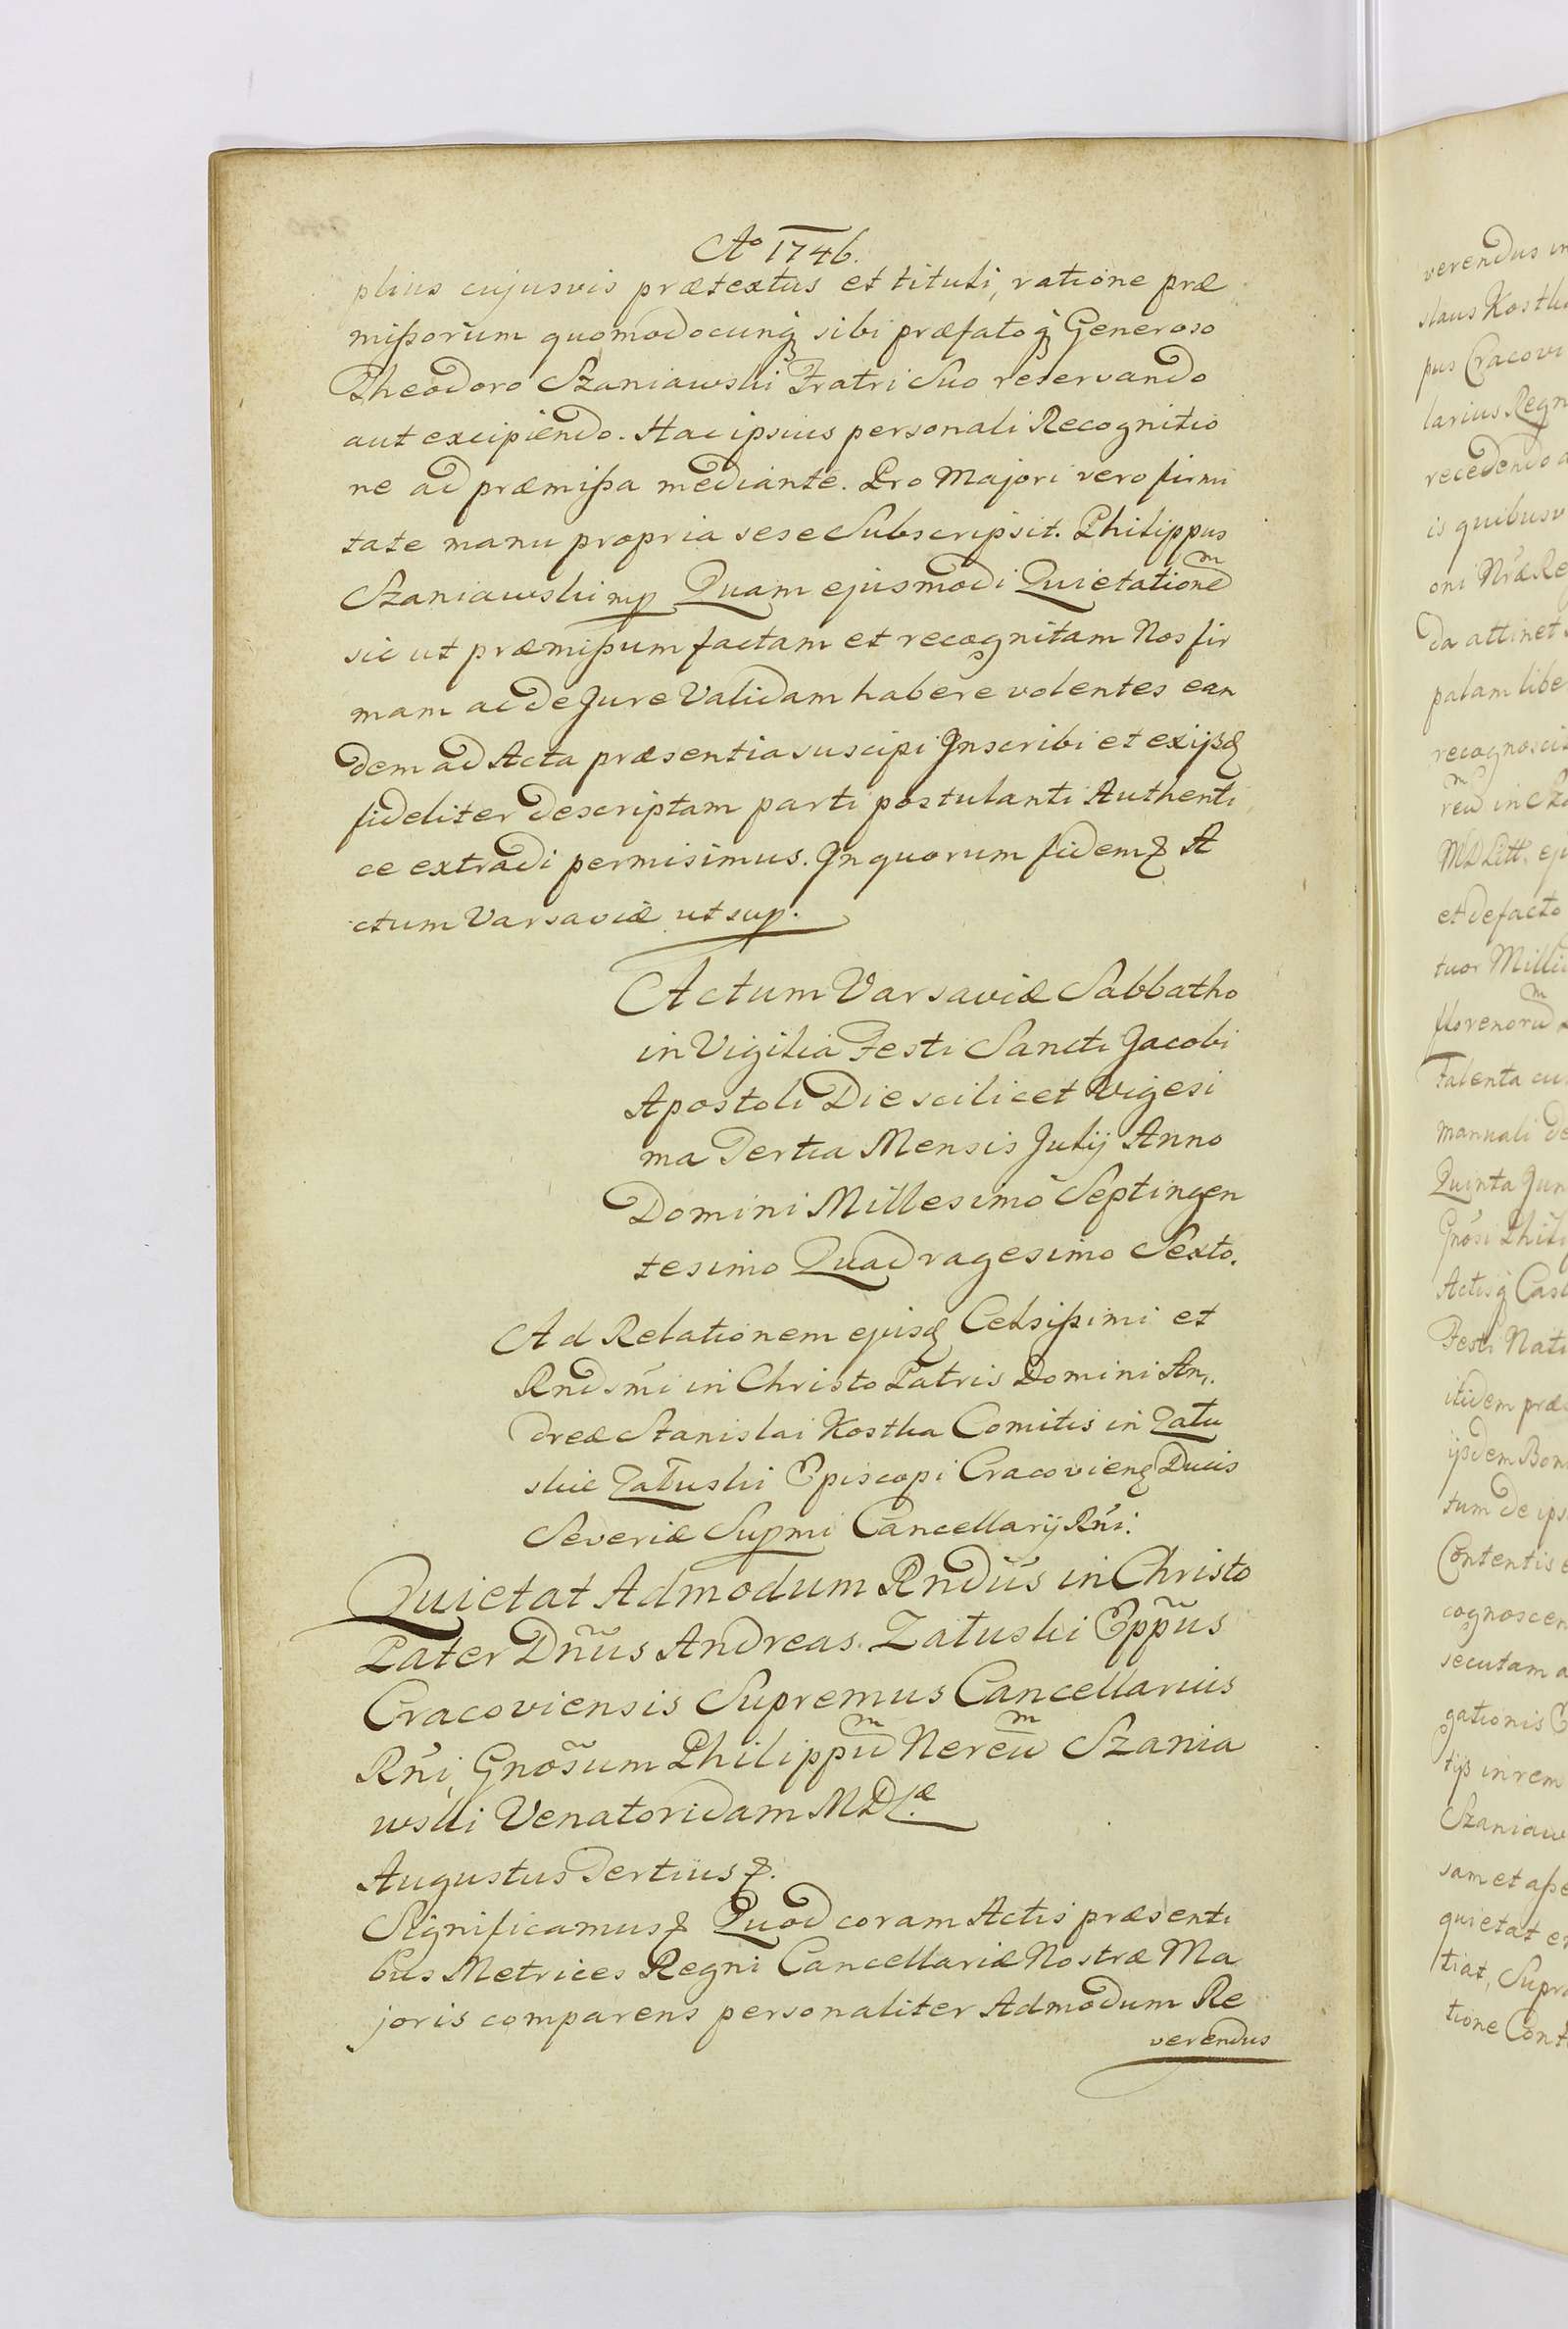 Ao 1746.
plius cujusvis prætextus et tituli, ratione præ
mißorum quomodocunq sibi præfatoq Generoso
Theodoro Szaniawski Fratri Suo reservando
aut excipiendo. Hac ipsius personali Recognitio
ne ad præmißa mediante. Pro Majori vero firmi
tate manu propria sese Subscripsit. Philippus
Szaniawski mp Quam ejusmodi Quietationem
sic ut præmißum factam et recognitam Nos fir
mam ac de Jure Validam habere volentes ean
dem ad Acta præsentia suscipi Inscribi et exijsq
fideliter descriptam parti postulanti Authenti
ce extradi permisimus. In quorum fidem & A
ctum Varsaviæ ut sup.
Actum Varsaviæ Sabbatho
in Vigilia Festi Sancti Jacobi
Apostoli Die scilicet Vigesi
ma Tertia Mensis Julij Anno
Domini Millesimo Septingen
tesimo Quadragesimo Sexto.
Ad Relationem ejusq Celsißimi et
Rndsmi in Christo Patris Domini An,
dreæ Stanislai Kostka Comitis in Zału
skie Załuski Episcopi Cracovienq Ducis
Severiæ Supmi Cancellarij Rńi.
Quietat Admodum Rndũs in Christo
Pater Dnũs Andreas Załuski Eppũs
Cracoviensis Supremus Cancellarius
Rńi, Gnõsum Philippũm Nereũm Szania
wski Venatoridam MDLæ
Augustus Tertius &.
Significamus & Quod coram Actis præsenti
bus Metrices Regni Cancellariæ Nostræ Ma
joris comparens personaliter Admodum Re
verendus
verendus
slaus Kostka
pus Cracovi
larius Regn
recedendo
is quibusv
oni Nræ Re
da attinet
palam libe
recognoscit
reum in
MD Litt. ej
et defacto
tuor Milli
florenorum
Talenta cu
manuali de
Quinta Jun
Gnõsi Phili
Actisq Cast
Festi Nati
itidem præ
ijsdem Bon
tum de ips
Contentis
cognoscen
secutam a
gationis
tijs in rem
Szaniaw
sam et aße
quietat et
tiat, Supra
tione Cont